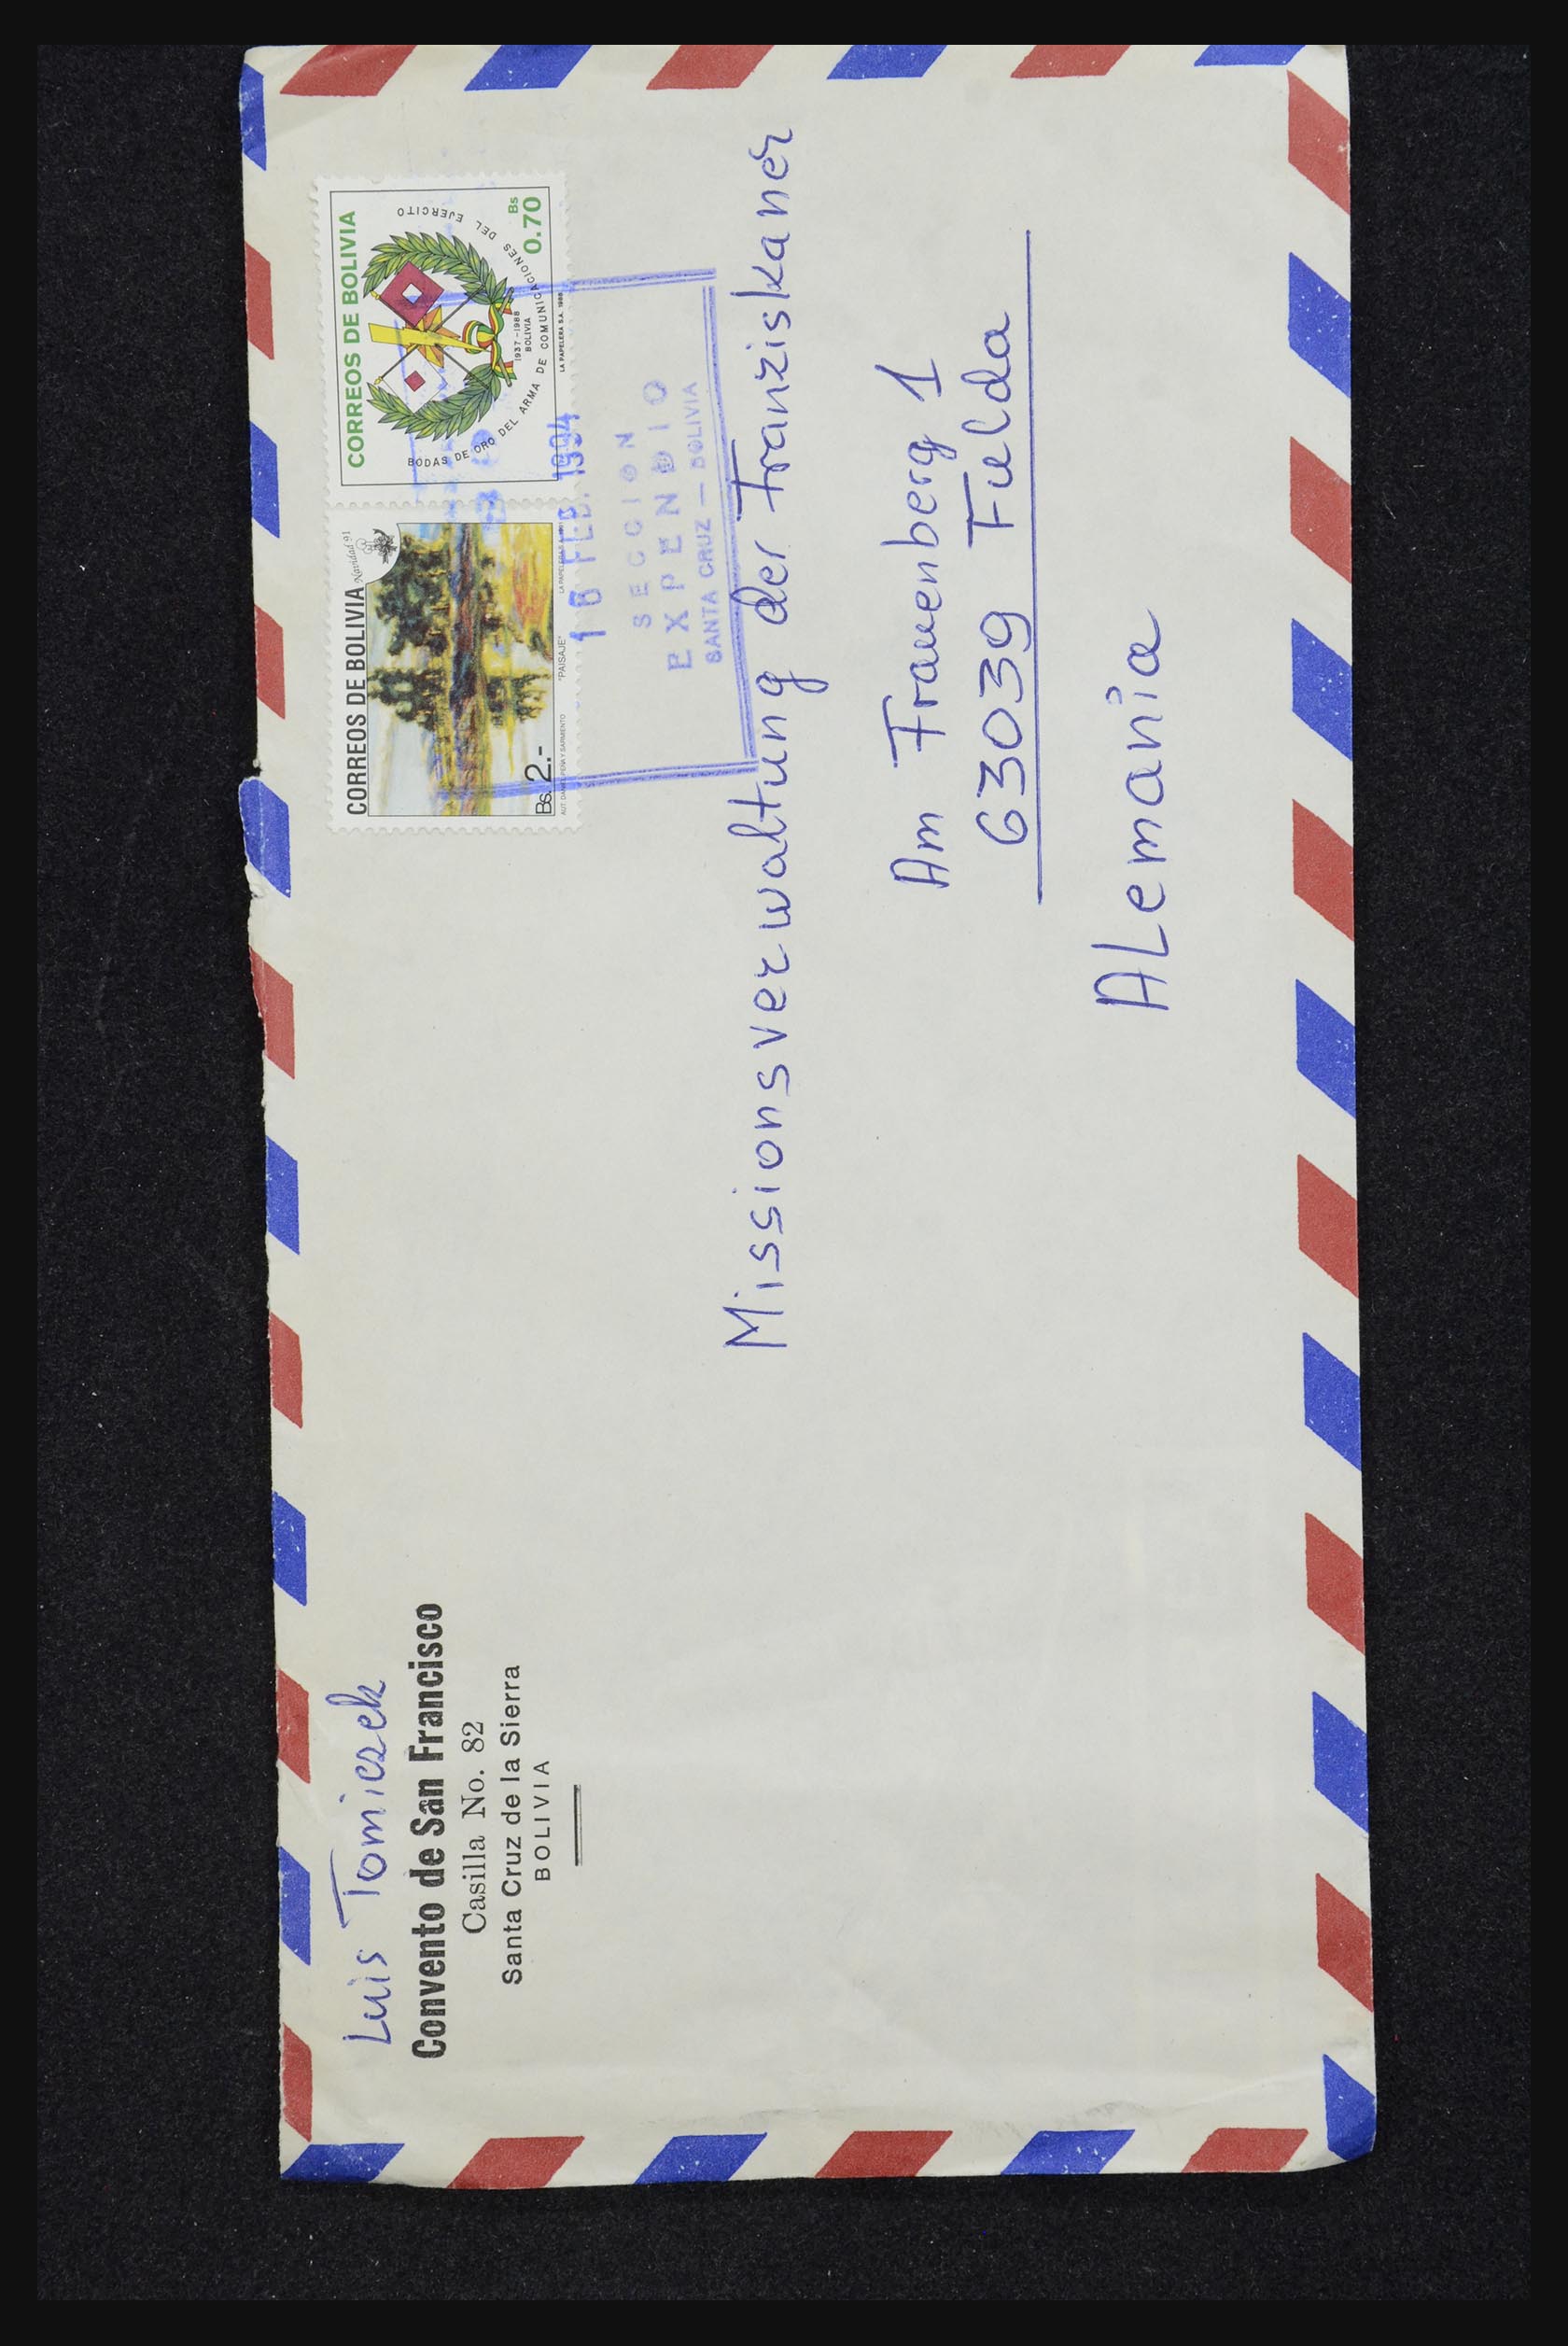 Luis Tomiczek
Convento de San Francisco
Casilla No. 82
Santa Cruz de la Sierra
BOLIVIA
CORREOS DE BOLIVIA
Navidad 91
Bs. 2.-
"PAISAJE"
CORREOS DE BOLIVIA
BODAS DE ORO DEL ARMA DE COMUNICACIONES DEL EJERCITO
1937-1988
BOLIVIA
Bs
0.70
LA PAPELERA S.A. 1988
16 FEB. 1994
SECCION
EXPENDIO
SANTA CRUZ — BOLIVIA
Missionsverwaltung der Franziskaner
Am Frauenberg 1
63039 Fulda
ALemania